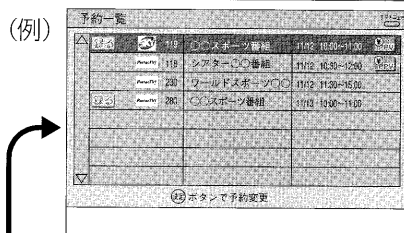 (例)
予約一覧
119 〇〇スポーツ番組 11/12 10:00~11:00
118 シアター〇〇番組 11/12 10:30~12:00
230 ワールドスポーツ〇〇 11/12 11:30~15:00
280 〇〇スポーツ番組 11/13 10:00~11:00
ボタンで予約変更